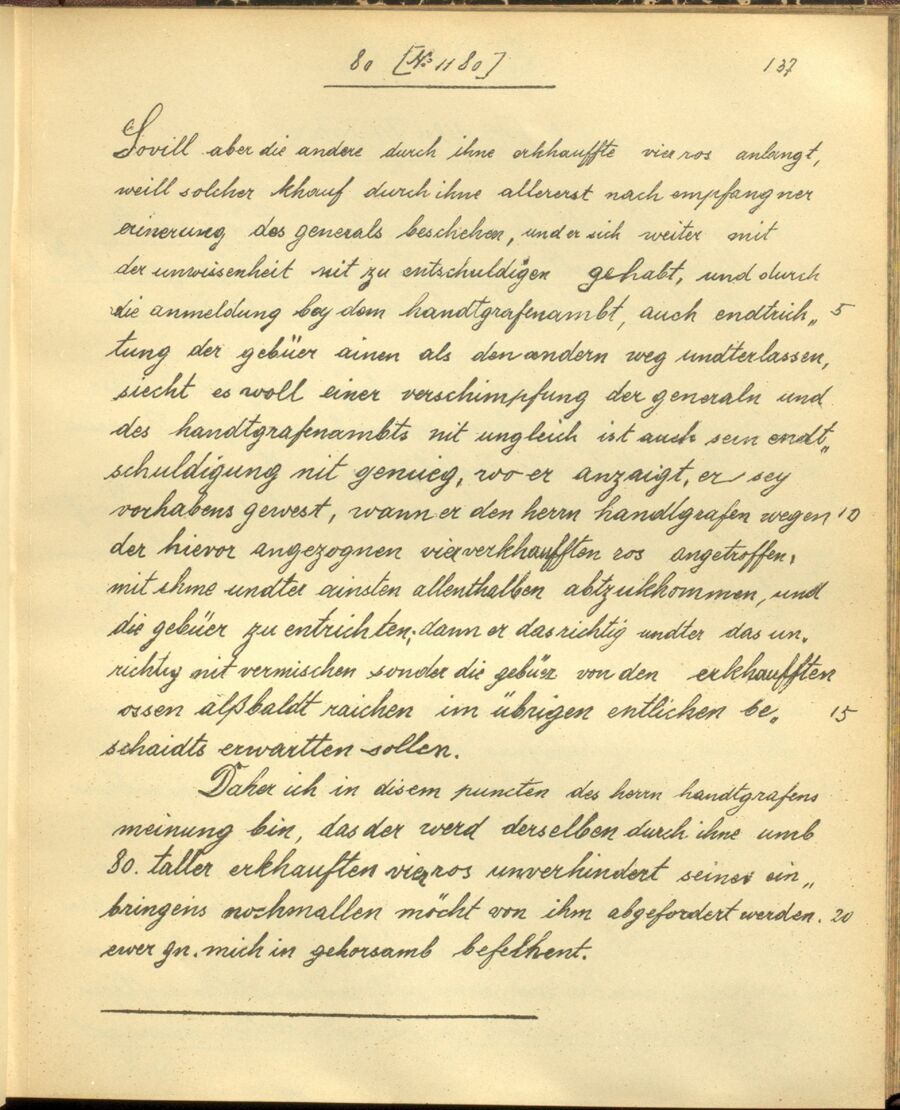 80 [№ 1180] 137
Sovill aber die andere durch ihne erkhauffte vier ros anlangt,
weill solcher khauf durch ihne allererst nach empfangner
erinerung des generals beschehen, und er sich weiter mit
der unwissenheit nit zu entschuldigen gehabt, und durch
die anmeldung bey dem handtgrafenambt, auch endtrich„ 5
tung der gebüer ainen als den andern weg undterlassen,
siecht es woll einer verschimpfung der generaln und
des handtgrafenambts nit ungleich ist auch sein endt„
schuldigung nit genueg, wo er anzaigt, er sey
vorhabens gewest, wann er den herrn handlgrafen wegen 10
der hievor angezognen vier verkhaufften ros angetroffen,
mit ihme undter einsten allenthalben abtzukhommen, und
die gebüer zu entrichten; dann er das richtig undter das un„
richtig nit vermischen sonder die gebüer von den erkhaufften
ossen alßbaldt raichen im übrigen entlichen be„ 15
schaidts erwartten sollen.
Daher ich in disem puncten des herrn handtgrafens
meinung bin, das der werd derselben durch ihne umb
80. taller erkhauften vier ros unverhindert seines ein„
bringens nochmallen möcht von ihm abgefordert werden. 20
ewer gn. mich in gehorsamb befelhent.